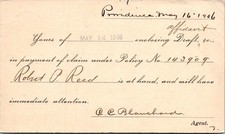 Providence, May 16" 1906
affidavit
Yours of MAY 14 1906 enclosing Draft, &c.
in payment of claim under Policy No. 143909
Robert P. Reed is at hand, and will have
immediate attention.
C C Blanchard
Agent.